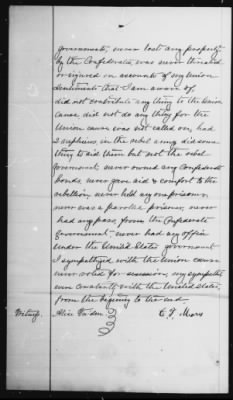 government, never lost any property
by the Confederates, was never threatened
or injured on account of my union
sentiments that I am aware of,
did not contribute any thing to the Union
cause, did not do any thing for the
Union cause, was not called on, had
2 nephews in the rebel army did some
thing to aid them but not the rebel
government, never owned any Confederate
bonds, never gave aid & comfort to the
rebellion, never held any one prisoner,
never was a paroled prisoner, never
had any pass from the Confederate
government, never had any office
under the United States government
I sympathized with the Union cause
never voted for secession, my sympathies
were constantly with the United States,
from the beginning to the end.
Witness Alice C. F. Mars